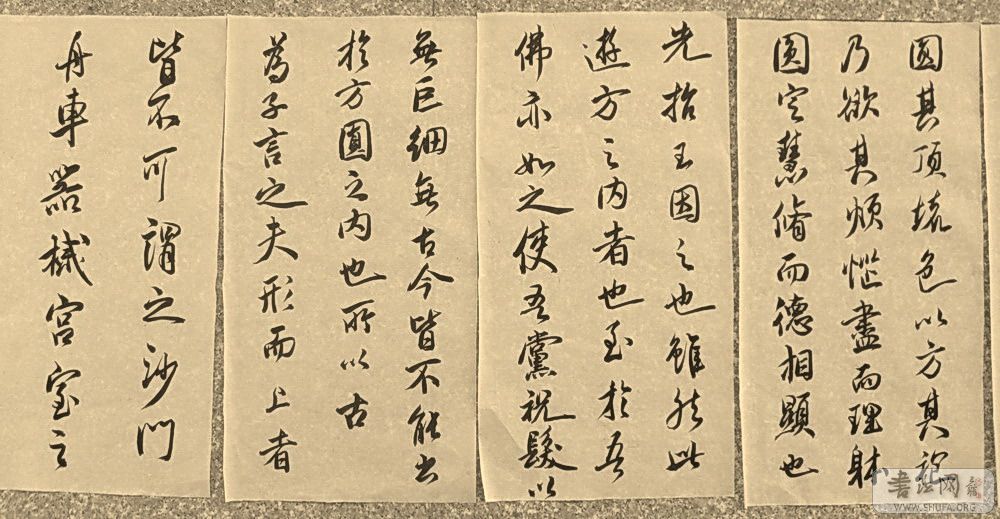 圓其頂壞色以方其袍
乃欲其煩惱盡而理躰
圓定慧脩而德相顯也
先哲王因之也雖然此
遊方之内者也至於吾
佛亦如之使吾黨祝髮以
無巨細無古今皆不能出
於方圓之内也所以古
為子言之夫形而上者
皆不可謂之沙門
舟車器械宮室之
书法网
WWW.SHUFA.ORG